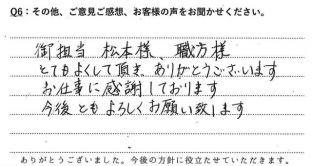 Q6：その他、ご意見ご感想、お客様の声をお聞かせください。
御担当 松本様、職方様
とてもよくして頂き、ありがとうございます
お仕事に感謝しております
今後ともよろしくお願い致します
ありがとうございました。今後の方針に役立たせていただきます。